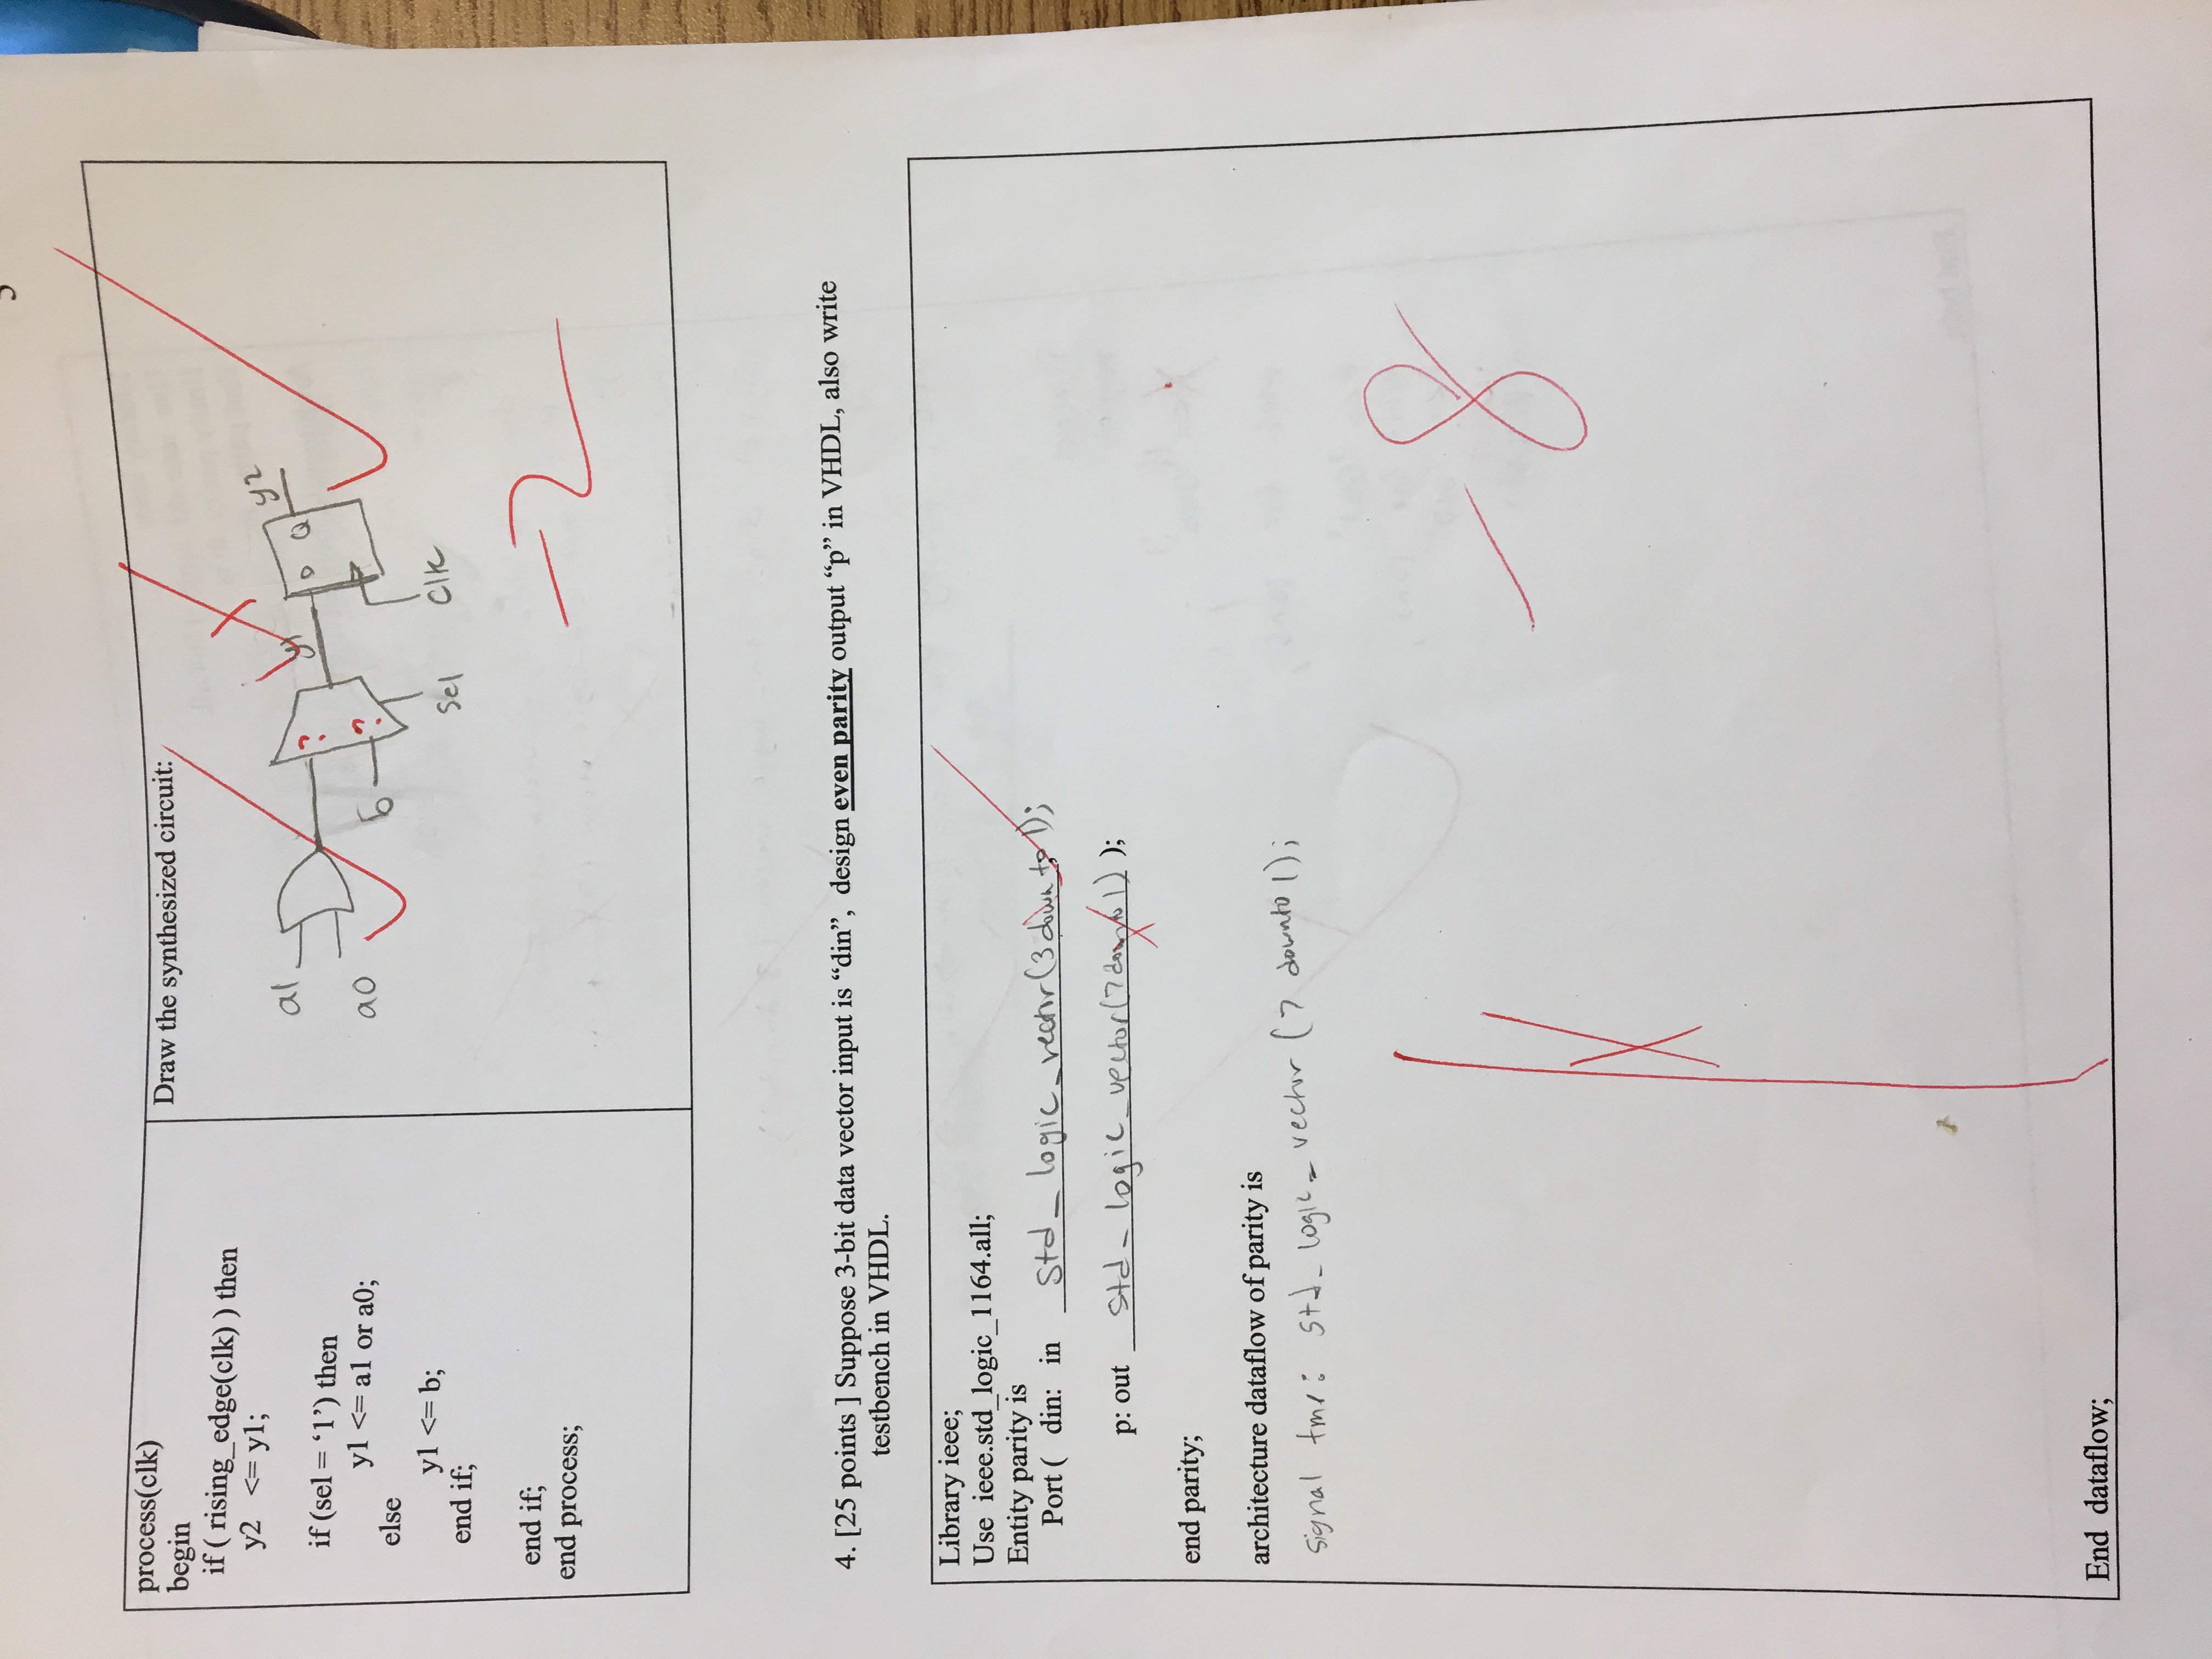 process(clk)
begin
if ( rising_edge(clk) ) then
y2 <= y1;
if (sel = ‘1’) then
y1 <= a1 or a0;
else
y1 <= b;
end if;
end if;
end process;
Draw the synthesized circuit:
a1
a0
b
?
?
sel
y1
D Q
y2
Clk
-2
4. [25 points ] Suppose 3-bit data vector input is “din”, design even parity output “p” in VHDL, also write
testbench in VHDL.
Library ieee;
Use ieee.std_logic_1164.all;
Entity parity is
Port ( din: in std_logic_vector(3 down to 1);
p: out std_logic_vector(7 downto 1) );
end parity;
architecture dataflow of parity is
signal : std_logic_vector (7 downto 1);
-8
End dataflow;